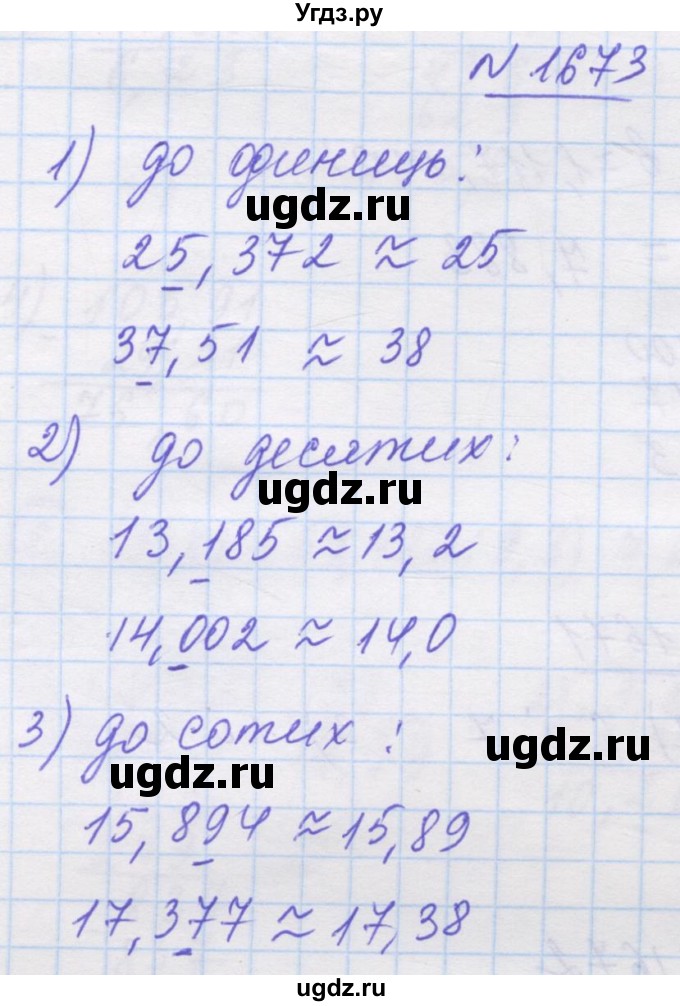 Угдз.ру
N 1673
1) до одиниць:
ugdz.ru
25,372 ≈ 25
37,51 ≈ 38
2) до десятих:
ugdz.ru
13,185 ≈ 13,2
14,002 ≈ 14,0
3) до сотих:
ugdz.ru
ugdz.ru
15,894 ≈ 15,89
17,377 ≈ 17,38
ugdz.ru